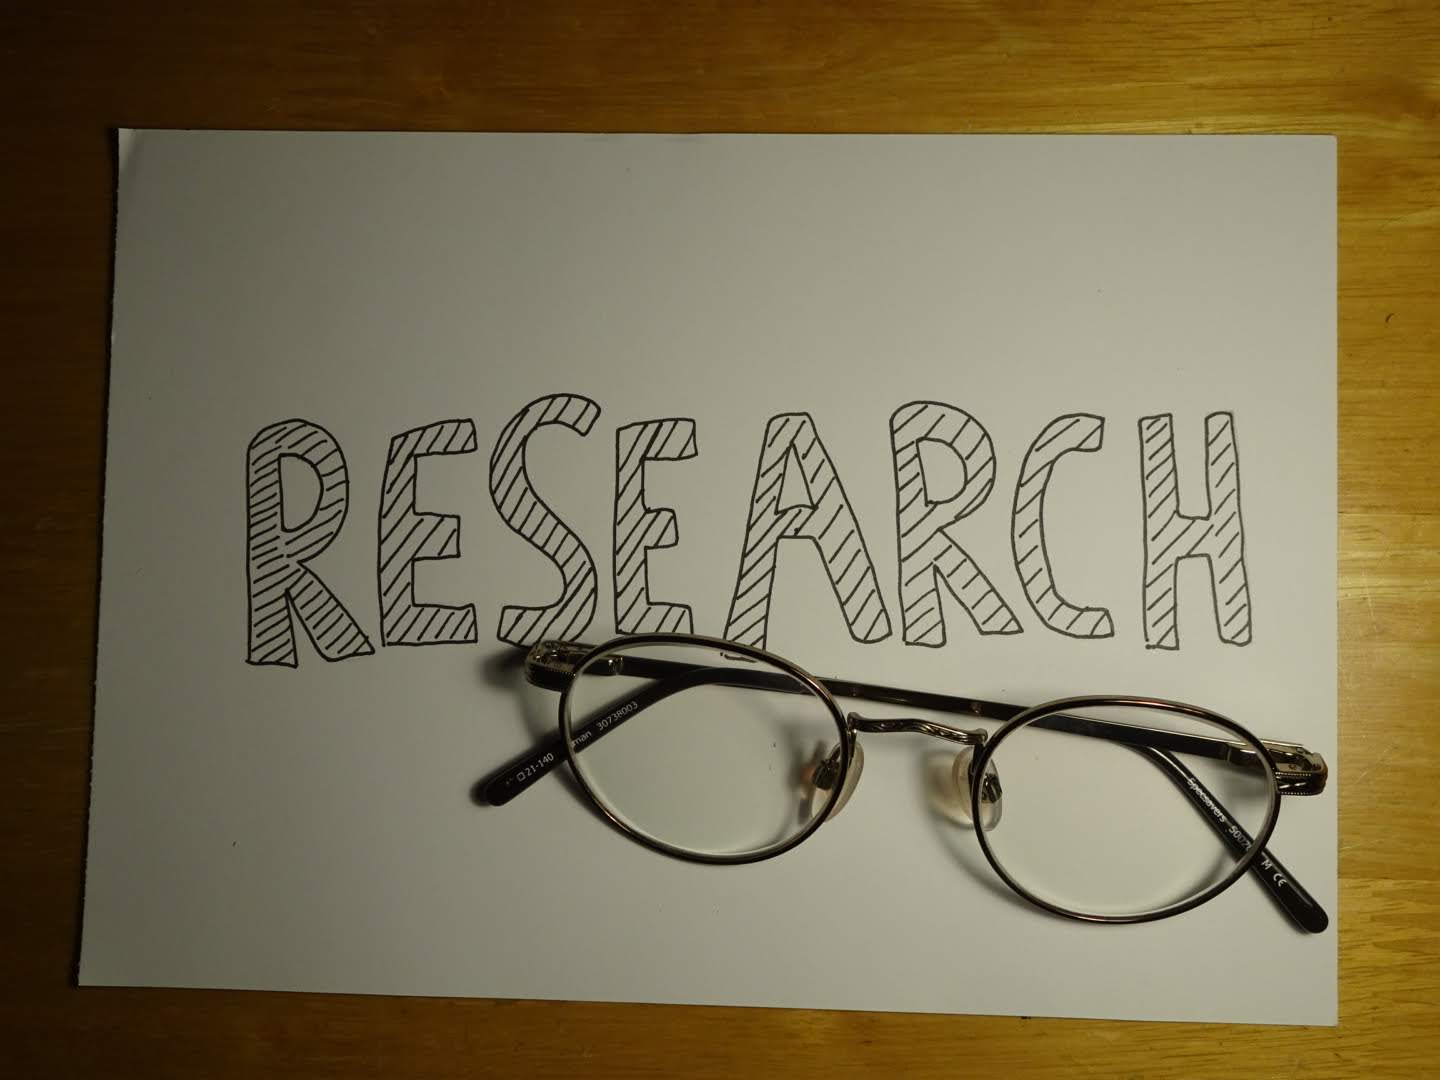 RESEARCH
21-140 30738003
Specsavers
M CE